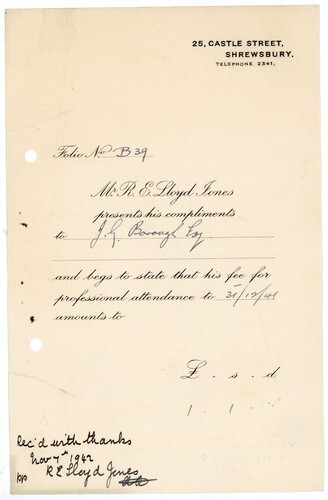 25, CASTLE STREET,
SHREWSBURY.
TELEPHONE 2341.
Folio No B 39
Mr. R. E. Lloyd Jones
presents his compliments
to J. G. Borough Esq
and begs to state that his fee for
professional attendance to 31/12/41
amounts to
£ . s . d
1 . 1 .
Rec'd with thanks
Nov 7th 1942
pp R E Lloyd Jones